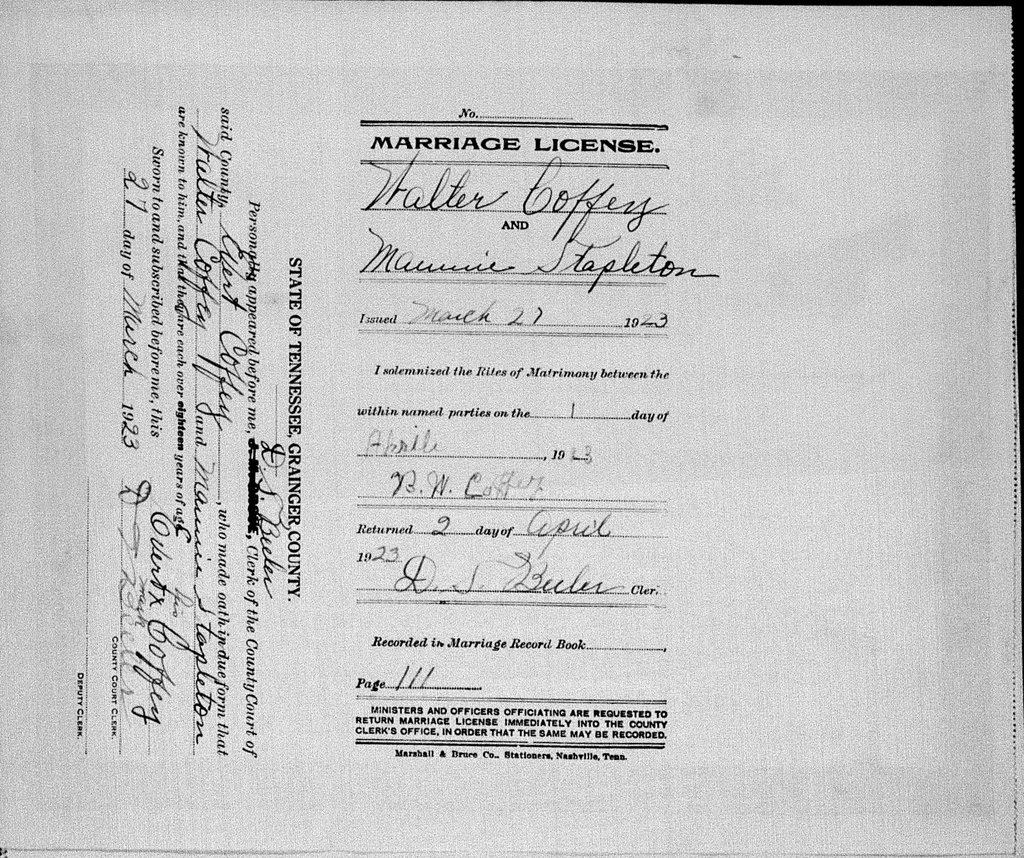 No.
MARRIAGE LICENSE.
Walter Coffey
AND
Mannie Stapleton
Issued March 27 1923
I solemnized the Rites of Matrimony between the
within named parties on the 1 day of
Aprile, 1923
B. W. Coffey
Returned 2 day of April
1923
D. S. Beeler Cler.
Recorded in Marriage Record Book,
Page 111
MINISTERS AND OFFICERS OFFICIATING ARE REQUESTED TO
RETURN MARRIAGE LICENSE IMMEDIATELY INTO THE COUNTY
CLERK'S OFFICE, IN ORDER THAT THE SAME MAY BE RECORDED.
Marshall & Bruce Co., Stationers, Nashville, Tenn.
STATE OF TENNESSEE, GRAINGER COUNTY.
D. S. Beeler
Personally appeared before me, Clerk of the County Court of
said County, Coffey, who made oath in due form that
Walter Coffey and Mannie Stapleton
are known to him, and that they are each over eighteen years of age
Sworn to and subscribed before me, this
his
Overt X Coffey
mark
27 day of March 1923
D S Beeler
COUNTY COURT CLERK.
DEPUTY CLERK.